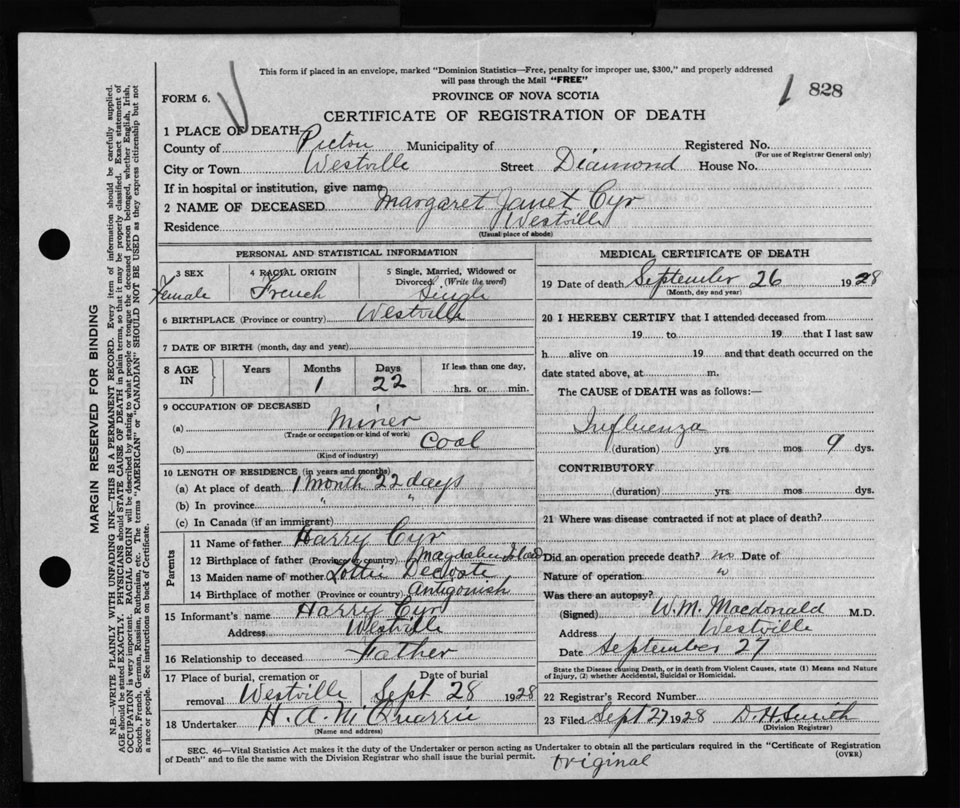 This form if placed in an envelope, marked "Dominion Statistics—Free, penalty for improper use, $300," and properly addressed
will pass through the Mail "FREE"
FORM 6.
PROVINCE OF NOVA SCOTIA
828
CERTIFICATE OF REGISTRATION OF DEATH
1 PLACE OF DEATH
County of Pictou Municipality of Registered No.
(For use of Registrar General only)
City or Town Westville Street Diamond House No.
If in hospital or institution, give name
2 NAME OF DECEASED Margaret Janet Cyr
Residence Westville
(Usual place of abode)
PERSONAL AND STATISTICAL INFORMATION
3 SEX 4 RACIAL ORIGIN 5 Single, Married, Widowed or
Divorced. (Write the word)
Female French Single
6 BIRTHPLACE (Province or country) Westville
7 DATE OF BIRTH (month, day and year)
8 AGE IN Years Months Days If less than one day,
1 22 hrs. or min.
9 OCCUPATION OF DECEASED
(a) Miner
(Trade or occupation or kind of work)
(b) Coal
(Kind of industry)
10 LENGTH OF RESIDENCE (in years and months)
(a) At place of death 1 month 22 days
(b) In province " "
(c) In Canada (if an immigrant)
Parents
11 Name of father Harry Cyr
12 Birthplace of father (Province or country) Magdalen
13 Maiden name of mother Lottie
14 Birthplace of mother (Province or country) Antigonish
15 Informant's name Harry Cyr
Address Westville
16 Relationship to deceased Father
17 Place of burial, cremation or Date of burial
removal Westville Sept 28 1928
18 Undertaker H. A. McQuarrie
(Name and address)
MEDICAL CERTIFICATE OF DEATH
19 Date of death September 26 1928
(Month, day and year)
20 I HEREBY CERTIFY that I attended deceased from
19 to 19 that I last saw
h alive on 19 and that death occurred on the
date stated above, at m.
The CAUSE of DEATH was as follows:—
Influenza
(duration) yrs mos 9 dys.
CONTRIBUTORY
(duration) yrs mos dys.
21 Where was disease contracted if not at place of death?
Did an operation precede death? no Date of
Nature of operation "
Was there an autopsy?
(Signed) W. M. Macdonald M.D.
Address Westville
Date September 27
State the Disease causing Death, or in death from Violent Causes, state (1) Means and Nature
of Injury, (2) whether Accidental, Suicidal or Homicidal.
22 Registrar's Record Number
23 Filed Sept 27 1928 D. H. Smith
(Division Registrar)
SEC. 46—Vital Statistics Act makes it the duty of the Undertaker or person acting as Undertaker to obtain all the particulars required in the "Certificate of Registration
of Death" and to file the same with the Division Registrar who shall issue the burial permit.
(OVER)
Original
MARGIN RESERVED FOR BINDING
N.B.—WRITE PLAINLY WITH UNFADING INK—THIS IS A PERMANENT RECORD. Every item of information should be carefully supplied.
AGE should be stated EXACTLY. PHYSICIANS should STATE CAUSE OF DEATH in plain terms, so that it may be properly classified. Exact statement of
OCCUPATION is very important. RACIAL ORIGIN will be described by stating to what people or tongue the deceased person belonged, whether English, Irish,
Scotch, French, German, Russian, Ruthenian, etc. The terms "AMERICAN" or "CANADIAN" SHOULD NOT BE USED as they express citizenship but not
a race or people. See instructions on back of Certificate.